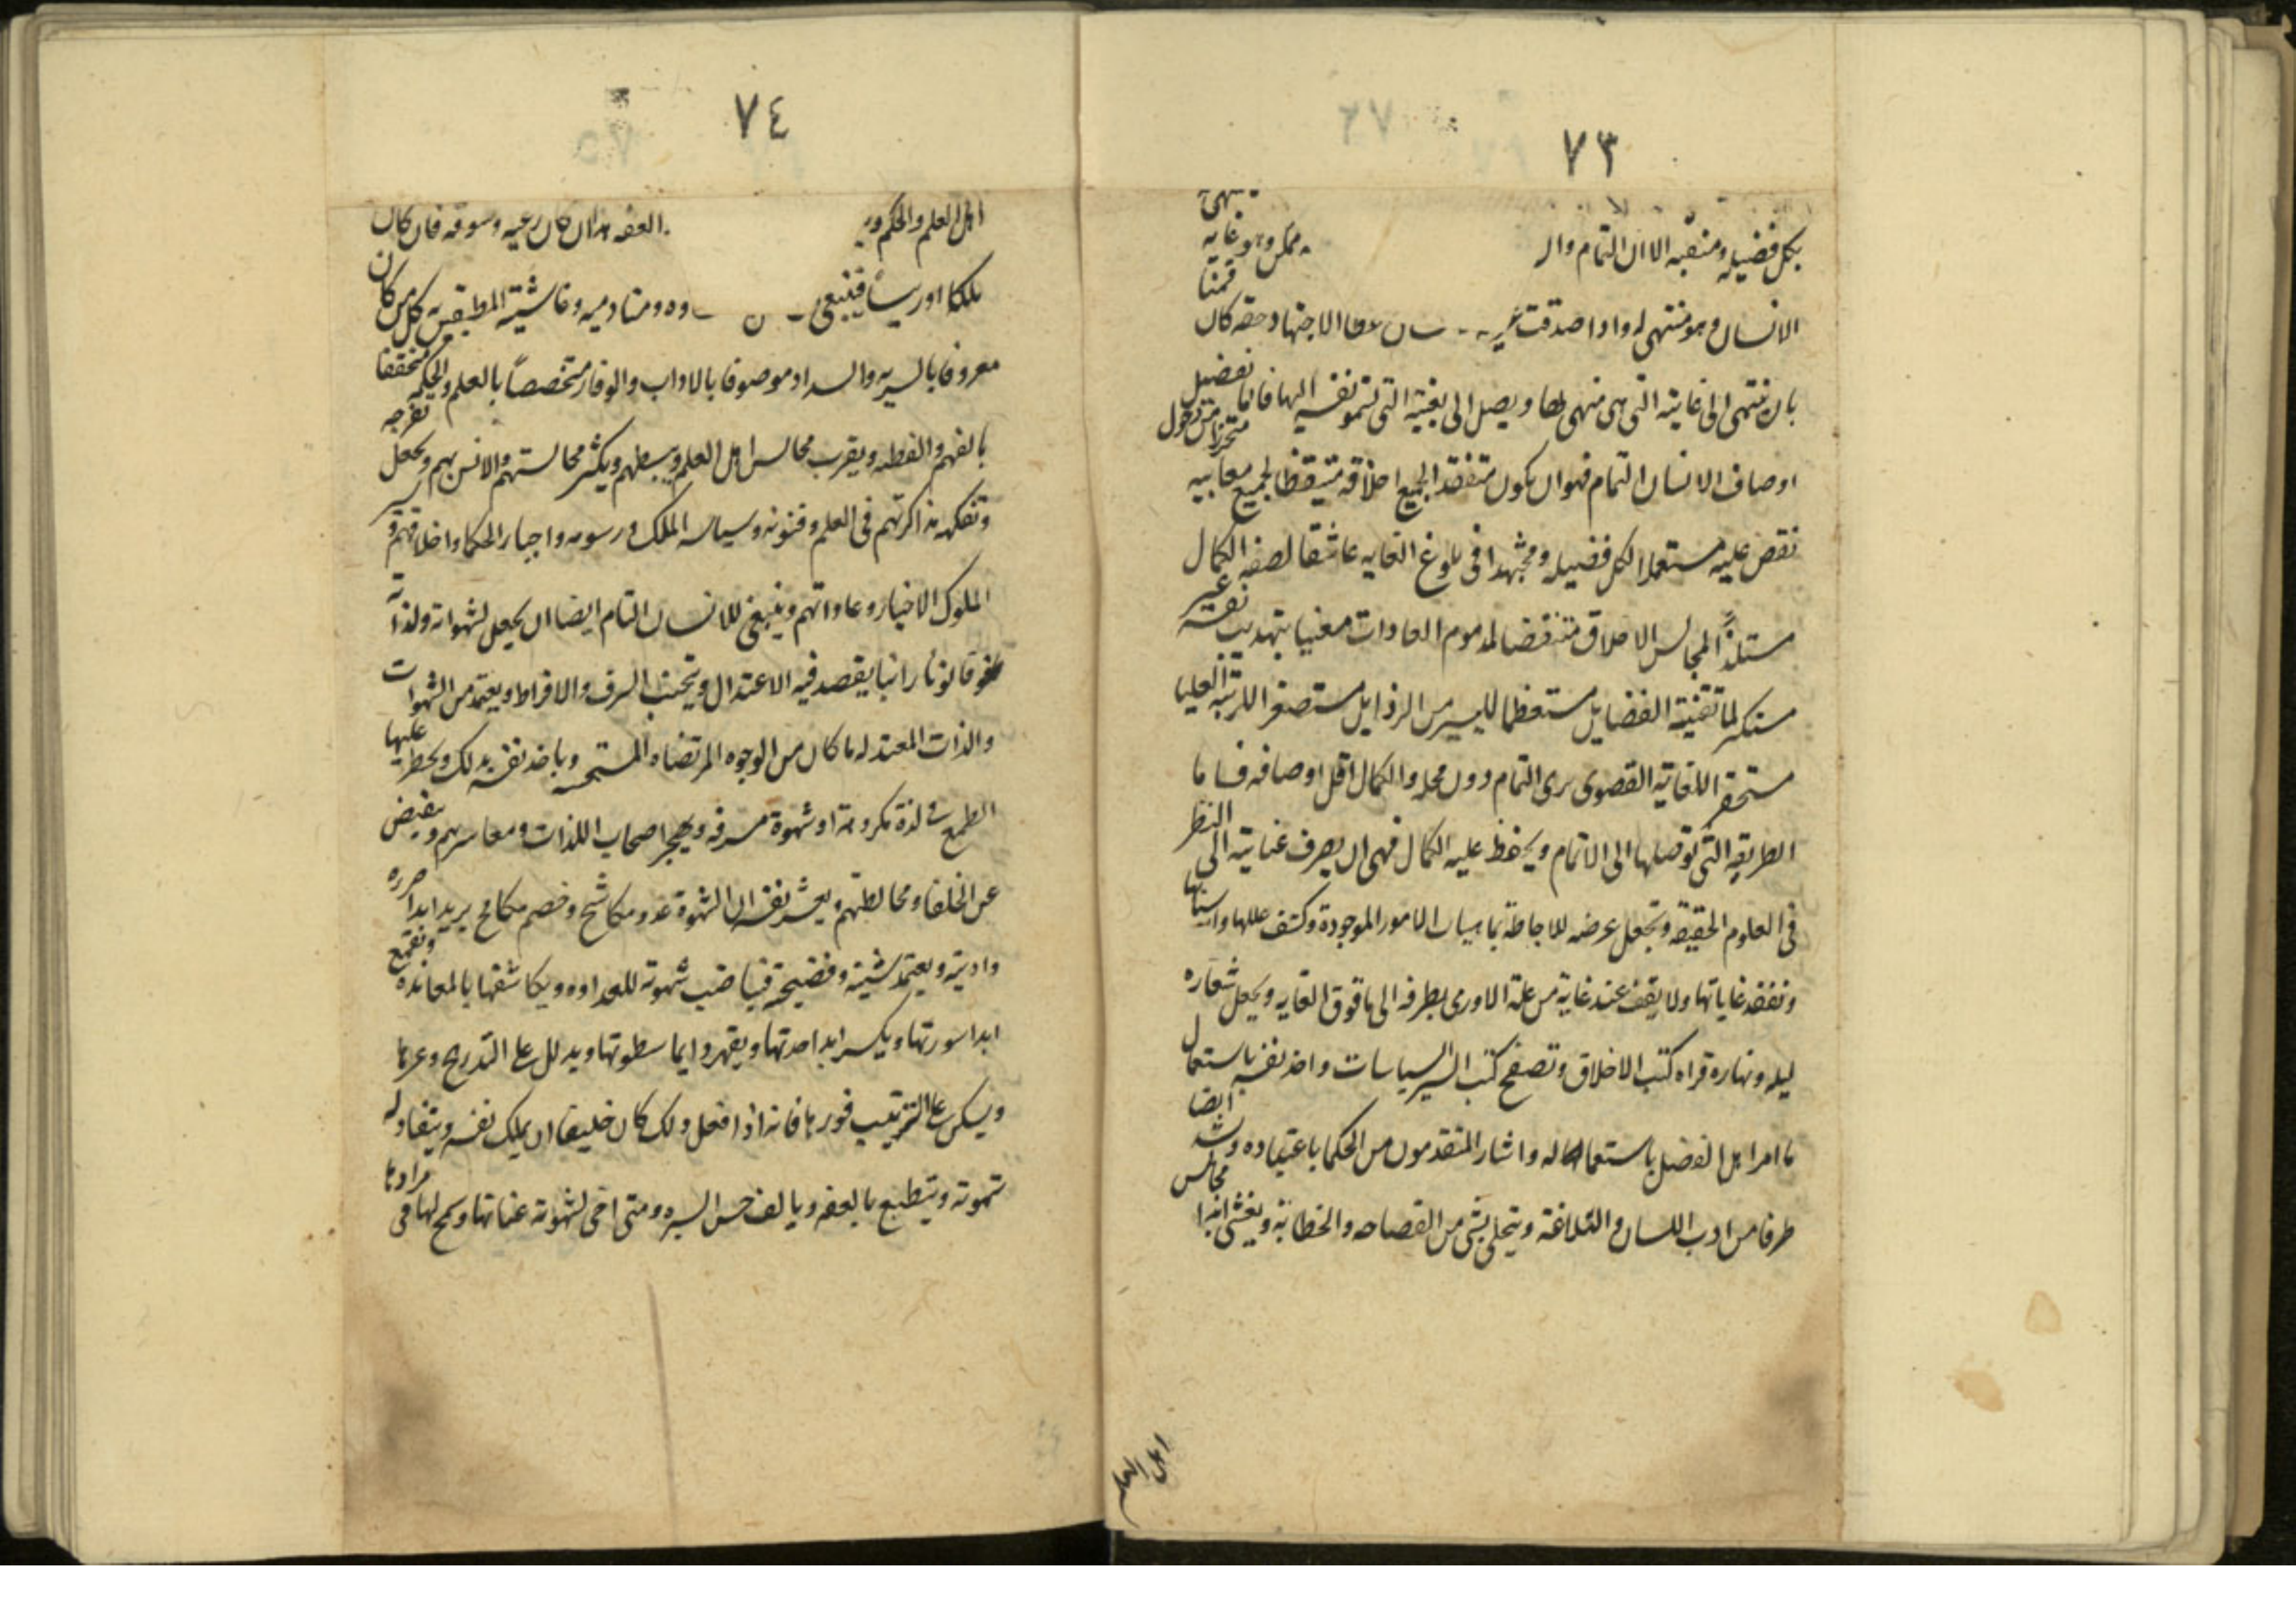 ٧٣
ينتهي
بكل فضيله ومنقبه الا ان التمام وان ممكن وهو غايه
الانسان وهو منتهى له واذا صدقت الاجتهاد حقه كان قمنا
بان ينتهى الى غايته التى هى منتهى لها ويصل الى بغيته التى تسمو نفسه اليها فاما تفضيل
اوصاف الانسان التمام فهو ان يكون متفقدا لجميع اخلاقه متيقظا لجميع معايبه متحرزا من دخول
نقص عليه مستعملا لكل فضيله ومجتهدا فى بلوغ الغايه عاشقا لصفه الكمال
مستلذا لمحاسن الاخلاق متنقضا لمذموم العادات معنيا بتهذيب نفسه غير
مستكثر لما تقتنيه الفضايل مستعظما لليسير من الرذايل مستصغرا للرتبه العليا
مستحقرا للغايه القصوى يرى التمام دون محله والكمال اقل اوصافه فاما
الطريقه التى توصلها الى الاتمام ويحفظ عليه الكمال فهى ان يصرف عنايته الى النظر
فى العلوم الحقيقه ويجعل غرضه للاحاطة بماهيات الامور الموجودة وكشف عللها واسبابها
وتفقد غاياتها ولا يقف عند غاية من علمه الا ورمى بطرفه الى ما فوق الغايه ويجعل شعاره
ليله ونهاره قراه كتب الاخلاق وتصفح كتب السير السياسات واخذ نفسه باستعمال
ما امر اهل الفضل باستعماله واشار المتقدمون من الحكما باعتياده ايضا
طرفا من ادب اللسان والبلاغة ويتحلى بشى من الفصاحه والخطابه ويغشى ابدا مجالس
اهل العلم
٧٤
اهل العلم والحكم العفه هذا ان كان رعيه وسوقه فان كان
ملكا او رييسا فينبغى ومنادميه وغاشيته المطيفين به كل من كان
معروفا بالسيره والسداد موصوفا بالاداب والوقار متخصصا بالعلم والحكمه متحققا
بالفهم والفطنه ويقرب مجالس اهل العلم ويبسطهم ويكثر مجالستهم والانس بهم ويجعل تفرجه
وتفكهه مذاكرتهم فى العلم وفنونه وسياسه الملك ورسومه واخبار الحكما واخلاقهم وسير
الملوك الاخيار وعاداتهم وينبغى للانسان التام ايضا ان يجعل لشهواته ولذاته
قانونا راتبا يقصد فيه الاعتدال ويتجنب السرف والافراط ويعتمد من الشهوات
والذات المعتدله ما كان من الوجوه المرتضاه المستحسنه وياخذ نفسه بذلك ويحظر عليها
الطمع فى لذة مكروهة او شهوة مسرفه ويهجر اصحاب اللذات ومعاشريهم ويقبض
عن الخلعا ومخالطتهم ويشعر نفسه ان الشهوة عدو مكاشح وخصم مكافح يريد ابدا ضرره
واذيته ويعتمد شينه وفضيحته فيناصب شهوته للعداوه ويكاشفها بالمعانده ويقمع
ابدا سورتها ويكسر ابدا حدتها ويقهر دايما سطوتها ويذلل على التدريج وعرها
ويسكن على الترتيب فورها فانه اذا فعل ذلك كان خليقا ان يملك نفسه وينقاد له
شهوته ويتطبع بالعفه ويالف حسن السيره ومتى ارخى لشهوته عنانها وسمح لها فى مرادها